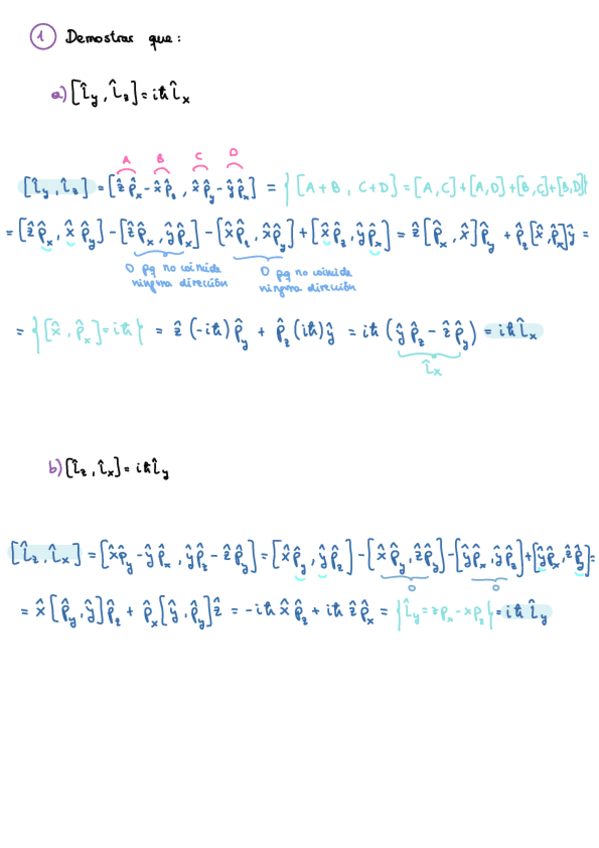 1 Demostrar que:
a) [L̂y, L̂z] = iħ L̂x
A B C D
[L̂y, L̂z] = [ẑ p̂x - x̂ p̂z, x̂ p̂y - ŷ p̂x] = { [A+B, C+D] = [A,C]+[A,D]+[B,C]+[B,D] }
= [ẑ p̂x, x̂ p̂y] - [ẑ p̂x, ŷ p̂x] - [x̂ p̂z, x̂ p̂y] + [x̂ p̂z, ŷ p̂x] = ẑ [p̂x, x̂] p̂y + p̂z [x̂, p̂x] ŷ =
0 pq no coincide ninguna dirección
0 pq no coincide ninguna dirección
= { [x̂, p̂x] = iħ } = ẑ (-iħ) p̂y + p̂z (iħ) ŷ = iħ (ŷ p̂z - ẑ p̂y) = iħ L̂x
L̂x
b) [L̂z, L̂x] = iħ L̂y
[L̂z, L̂x] = [x̂ p̂y - ŷ p̂x, ŷ p̂z - ẑ p̂y] = [x̂ p̂y, ŷ p̂z] - [x̂ p̂y, ẑ p̂y] - [ŷ p̂x, ŷ p̂z] + [ŷ p̂x, ẑ p̂y] =
0 0
= x̂ [p̂y, ŷ] p̂z + p̂x [ŷ, p̂y] ẑ = -iħ x̂ p̂z + iħ ẑ p̂x = { L̂y = zpx - xpz } = iħ L̂y